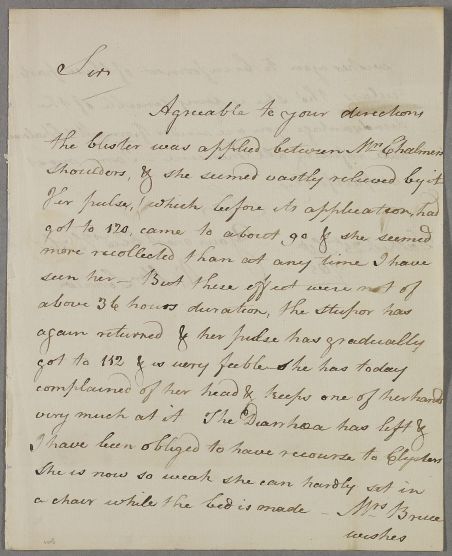 Sir
Agreeable to your directions
the blister was applied between Mrs Chalmers
shoulders, & she seemed vastly relieved by it
Her pulse, which before its application, had
got to 120, came to about 90 & she seemed
more recollected than at any time I have
seen her - But these effect were not of
above 36 hours duration, the stupor has
again returned & her pulse has gradually
got to 112 & is very feeble she has today
complained of her head & keeps one of her hands
very much at it The Diarrhœa has left &
I have been obliged to have recourse to Clysters
She is now so weak she can hardly set in
a chair while the bed is made - Mrs Bruce
wishes